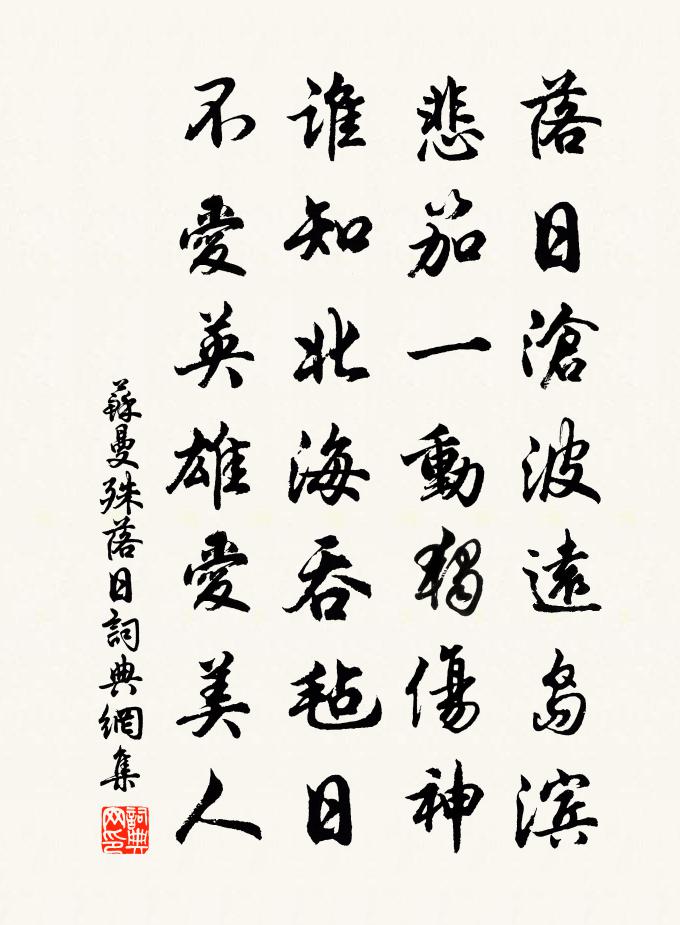 落日滄波遠島滨
悲笳一動獨傷神
誰知北海吞毡日
不愛英雄愛美人
蘇曼殊落日詞典網集
詞典网印